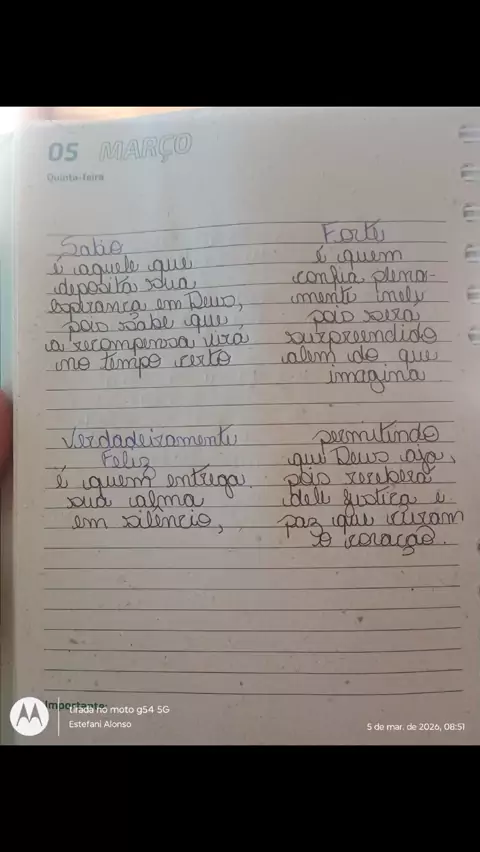 05 MARÇO
Quinta-feira
Sabio
é aquele que
deposita sua
esperança em Deus,
pois sabe que
a recompensa virá
no tempo certo
Forte
é quem
confia plena-
mente nely
pois sera
surpreendido
alem do que
imagina
Verdadeiramente
Feliz
é quem entrega
sua alma
em silêncio,
permitindo
que Deus aja,
pois receberá
dele justiça e
paz que curam
o coração.
Importante:
tirada no moto g54 5G
Estefani Alonso
5 de mar. de 2026, 08:51